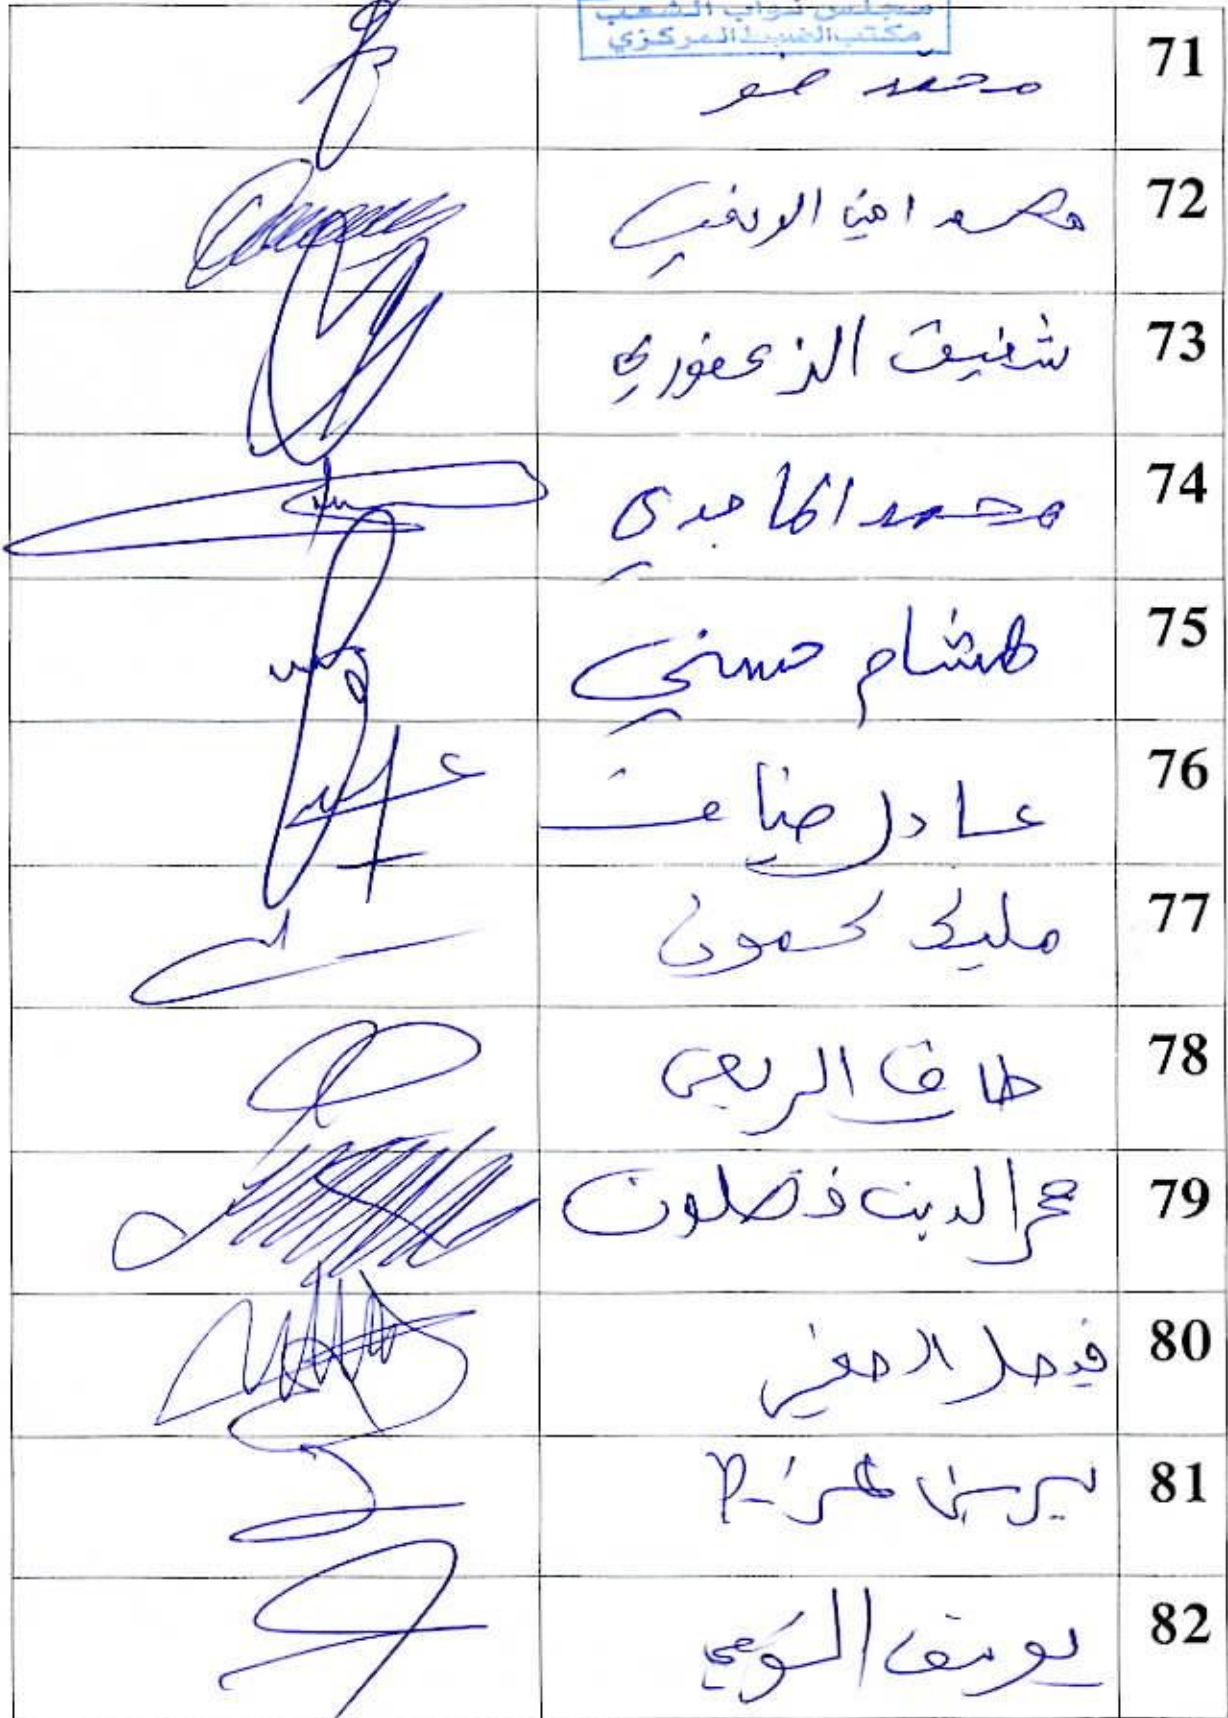 مجلس نواب الشعب
مكتب الضبط المركزي
71 محمد ضو
72 محمد امين الورغي
73 شفيق الزعفوري
74 محمد الماجدي
75 هشام حسني
76 عادل ضياف
77 مليك كمون
78 طارق الربعي
79 عز الدين فضلون
80 فيصل الصغير
81 سيرين
82 يوسف التومي